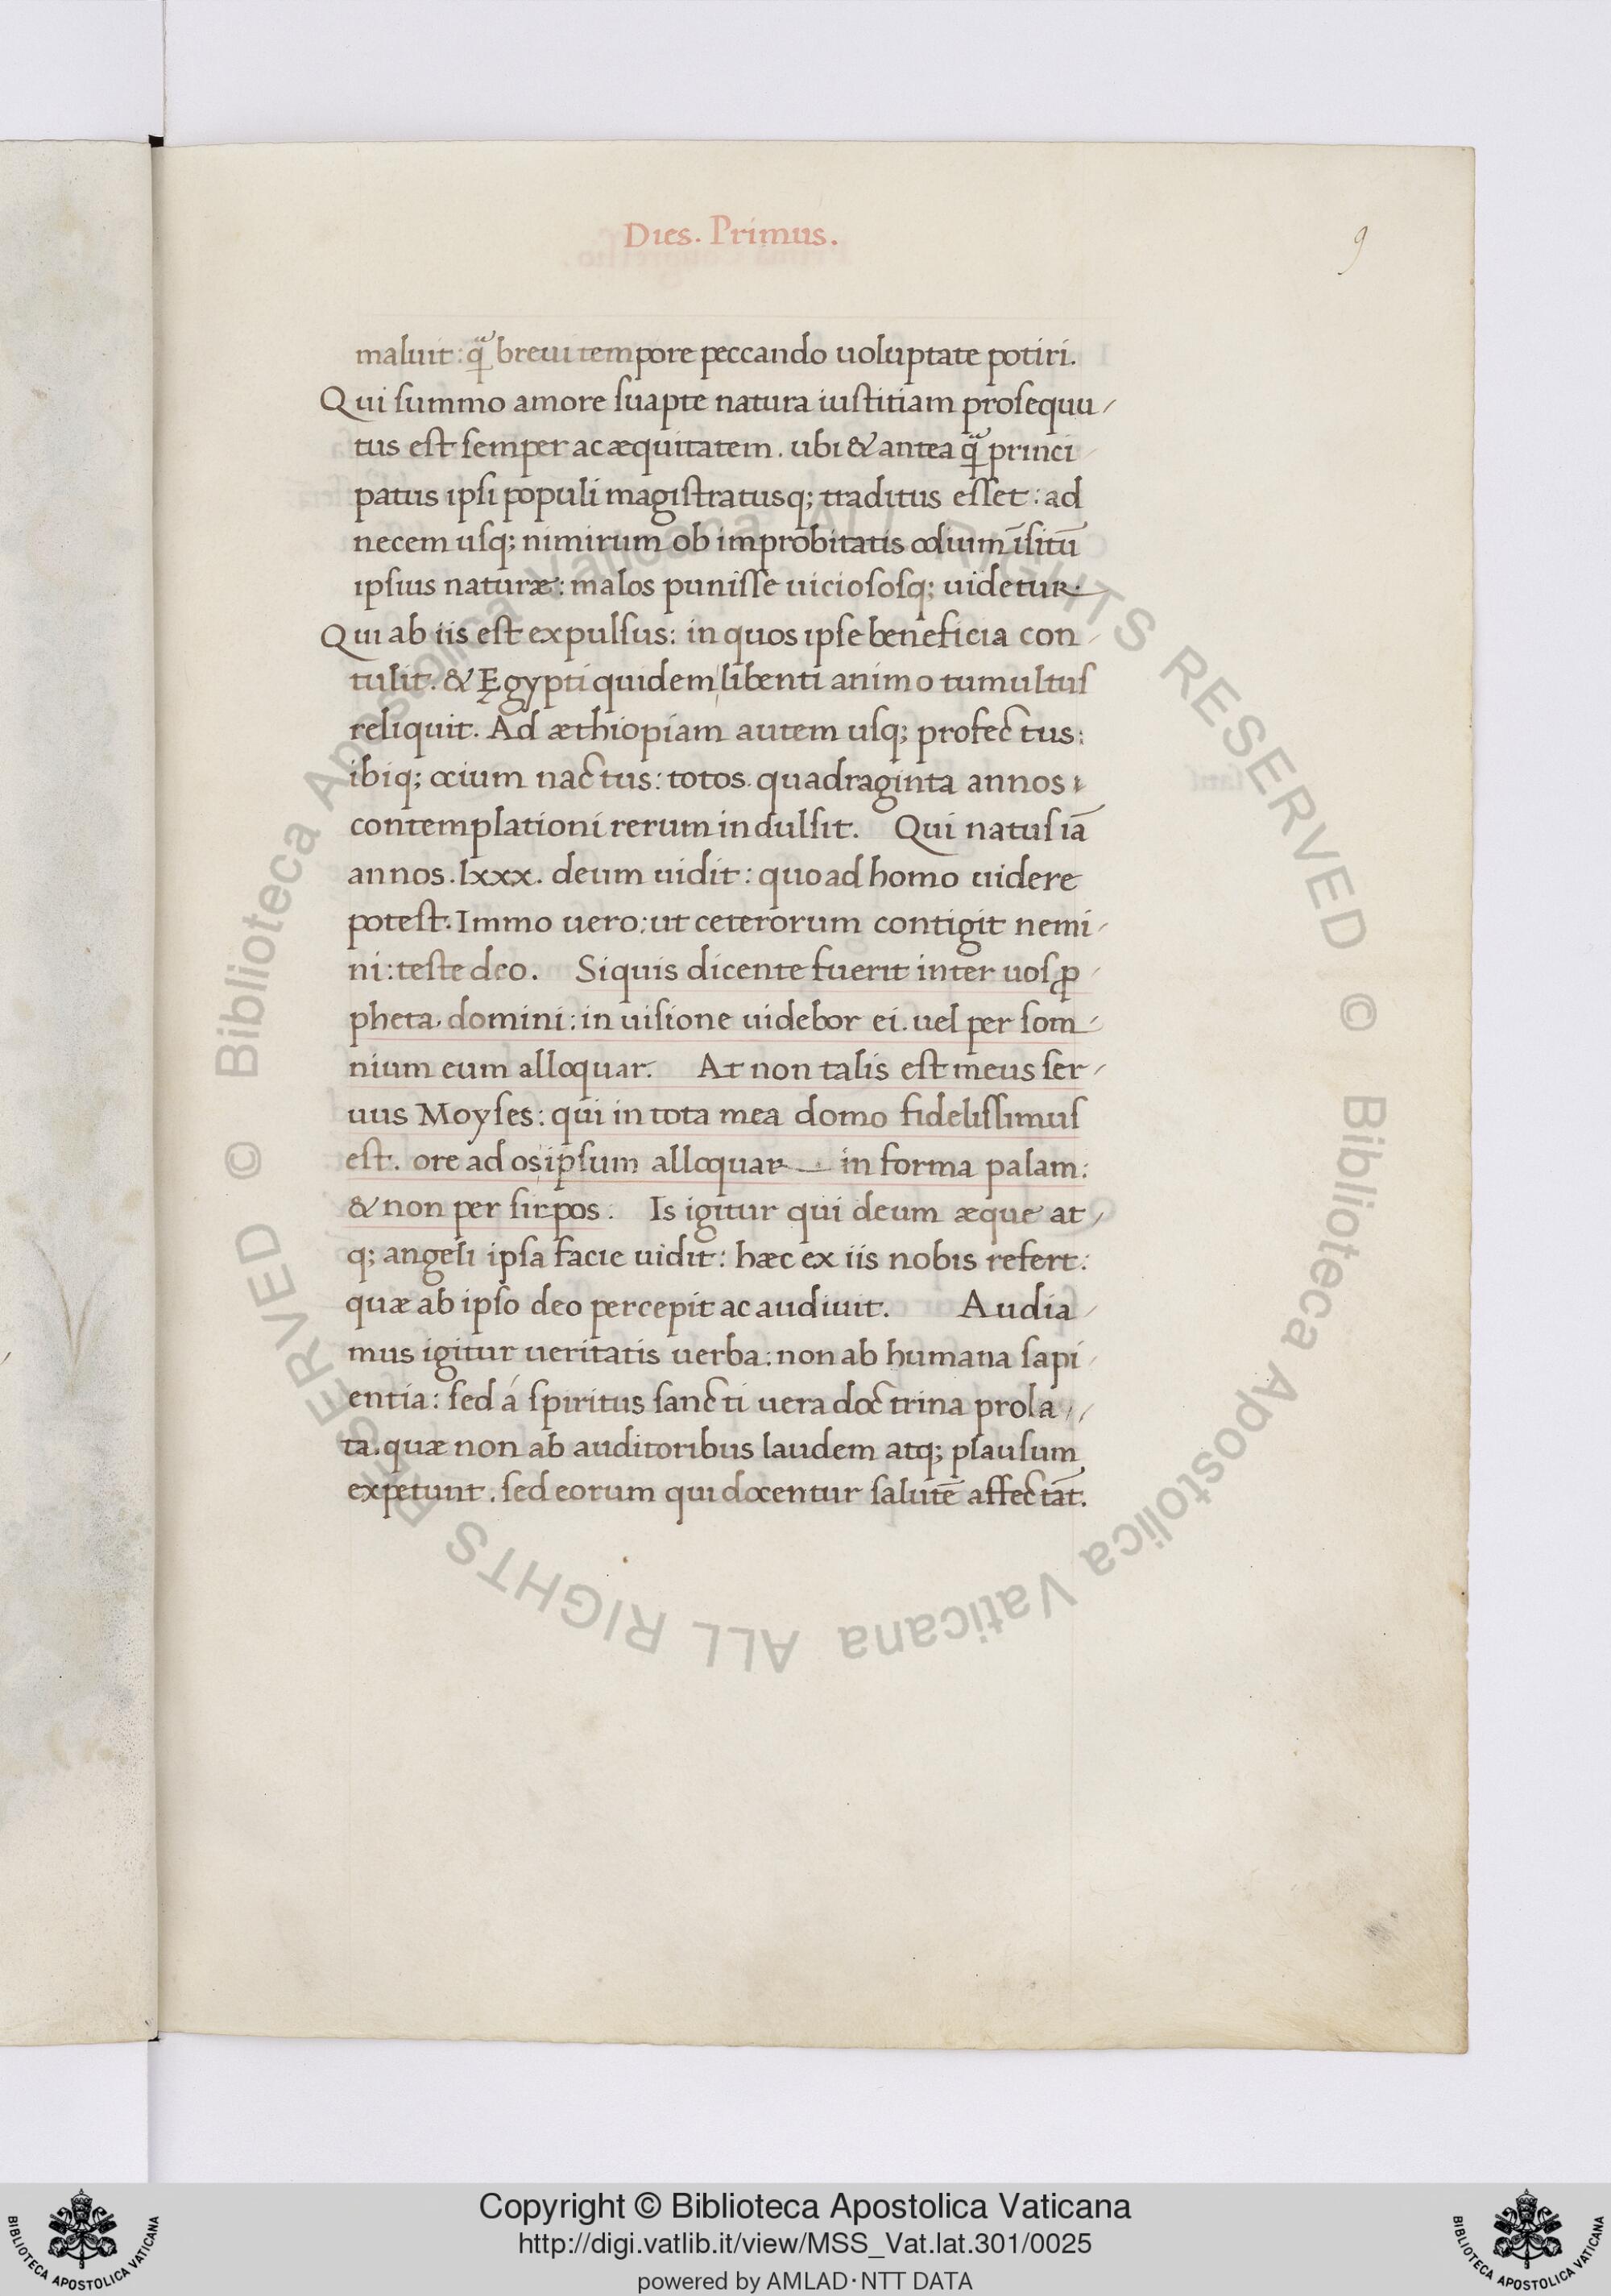 Dies. Primus.
9
maluit: qᷓ breui tempore peccando uoluptate potiri.
Qui ſummo amore ſuapte natura iuſtitiam proſequu/
tus eſt ſemper ac æquitatem. ubi & antea qᷓ princi/
patus ipſi populi magiſtratusq; traditus eſſet: ad
necem uſq; nimirum ob improbitatis odium ĩſitũ
ipſius naturæ: malos puniſſe uicioſoſq; uidetur.
Qui ab iis eſt expulſus: in quos ipſe beneficia con/
tulit. & Ęgypti quidem libenti animo tumultuſ
reliquit. Ad æthiopiam autem uſq; profectus:
ibiq; ocium nactus: totos quadraginta annos
contemplationi rerum indulſit. Qui natuſ iã
annos. lxxx. deum uidit: quoad homo uidere
poteſt. Immo uero: ut ceterorum contigit nemi/
ni: teſte deo. Siquis dicente fuerit inter uoſ ꝓ/
pheta domini: in uiſione uidebor ei. uel per ſom/
nium eum alloquar. At non talis eſt meus ſer/
uus Moyſes: qui in tota mea domo fideliſſimuſ
eſt. ore ad os ipſum alloquar — in forma palam:
& non per ſirpos. Is igitur qui deum æque at/
q; angeli ipſa facie uidit: hæc ex iis nobis refert:
quæ ab ipſo deo percepit ac audiuit. Audia/
mus igitur ueritatis uerba: non ab humana ſapi/
entia: ſed á ſpiritus ſancti uera doctrina prola//
ta. quæ non ab auditoribus laudem atq; plauſum
expetunt. ſed eorum qui docentur ſalutẽ affectãt.
© Biblioteca Apostolica Vaticana ALL RIGHTS RESERVED © Biblioteca Apostolica Vaticana ALL RIGHTS RESERVED
Copyright © Biblioteca Apostolica Vaticana
http://digi.vatlib.it/view/MSS_Vat.lat.301/0025
powered by AMLAD·NTT DATA
BIBLIOTECA APOSTOLICA VATICANA
BIBLIOTECA APOSTOLICA VATICANA